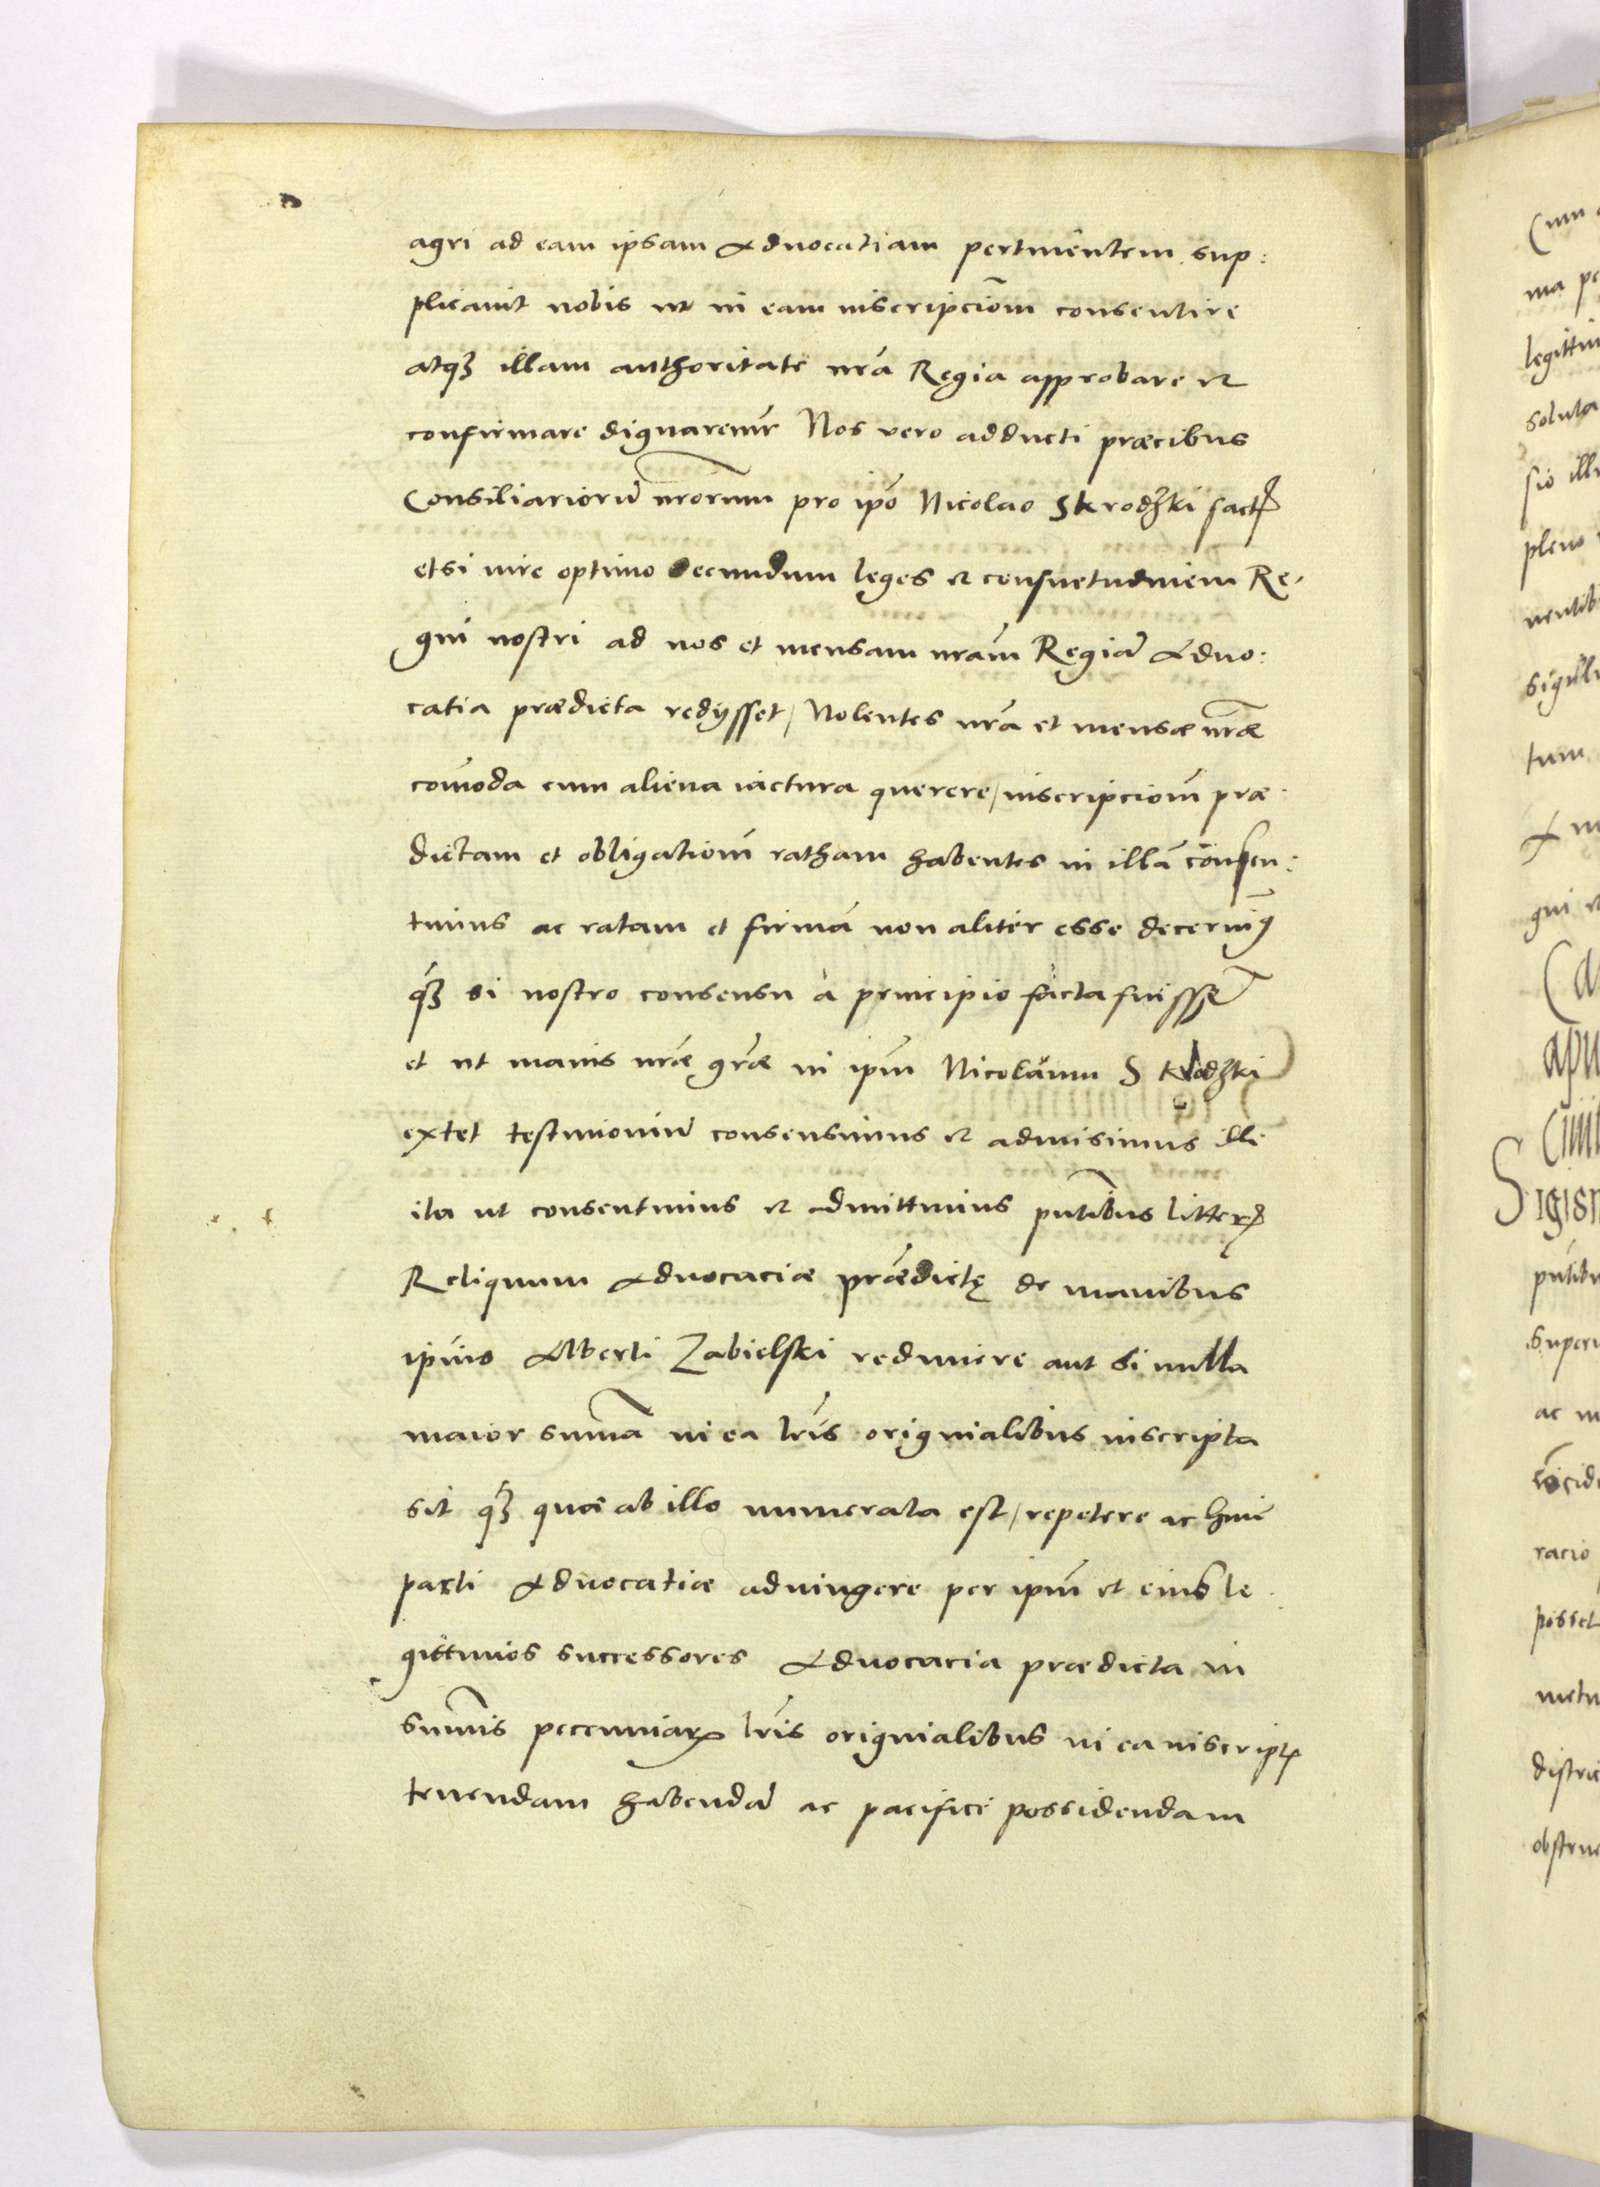 agri ad eam ipsam Aduocatiam pertinentem sup:
plicauit nobis ut in eam inscripcio͞m consentire
atqꝫ illam authoritate nr͞a Regia approbare et
confirmare dignaremur Nos vero adducti præcibus
Consiliarioru͞ nr͞orum pro ip͞o Nicolao Skrodzki fact
etsi iure optimo secundum leges et consuetudinem Re-
gni nostri ad nos et mensam nr͞am Regia͞ Aduo:
catia prædicta redysset, Nolentes nr͞a et mensæ nr͞æ
com͞oda cum aliena iactura querere, inscripcio͞m præ
dictam et obligatio͞m ratham habentes in illa͞ consen:
timus ac ratam et firma͞ non aliter esse decernim͞9
q͞ꝫ si nostro consensu à principio facta fuisset
et ut maius nr͞æ gr͞æ in ip͞m Nicolaum Skrodzki
extet testimoniu͞ consensimus et admisimus illi
ita ut consentimus et admittimus pn͞tibus litterꝭ
Reliquum Aduocaciæ prædictę de manibus
ip͞ius Alberti Zabielski redimere aut si nulla
maior sum͞a in ea lr͞is originalibus inscripta
sit q͞ꝫ quæ ab illo numerata est, repetere ac huic
parti Aduocatiæ adiungere per ip͞m et eius le
gittimos successores Aduocacia prædicta in
sum͞is pecuniaꝝ lr͞is originalibus in ea inscriptꝭ
tenendam habenda͞ ac pacifice possidendam